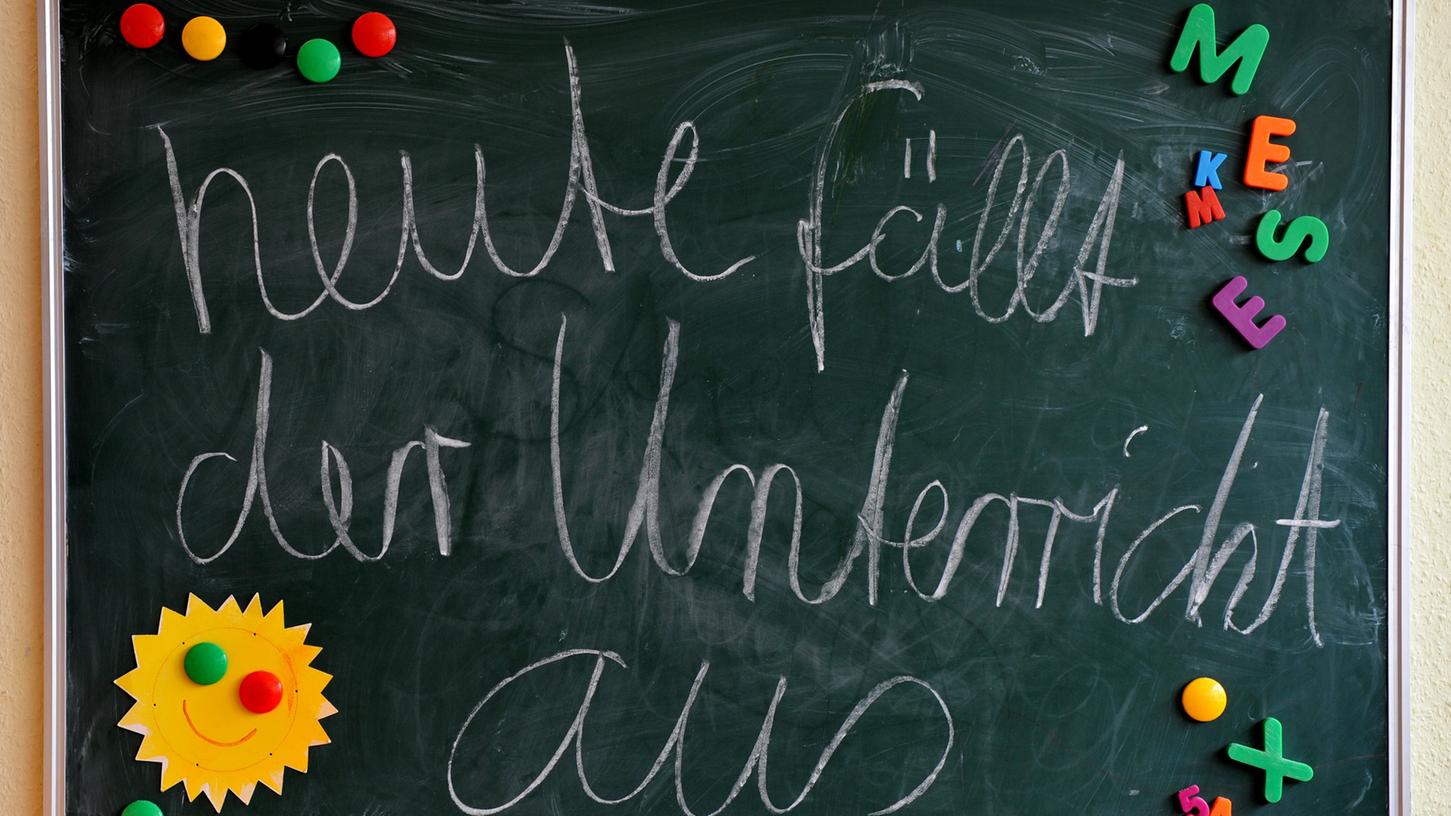 heute fällt
der Unterricht
aus
M
E
K
M
S
E
X
5